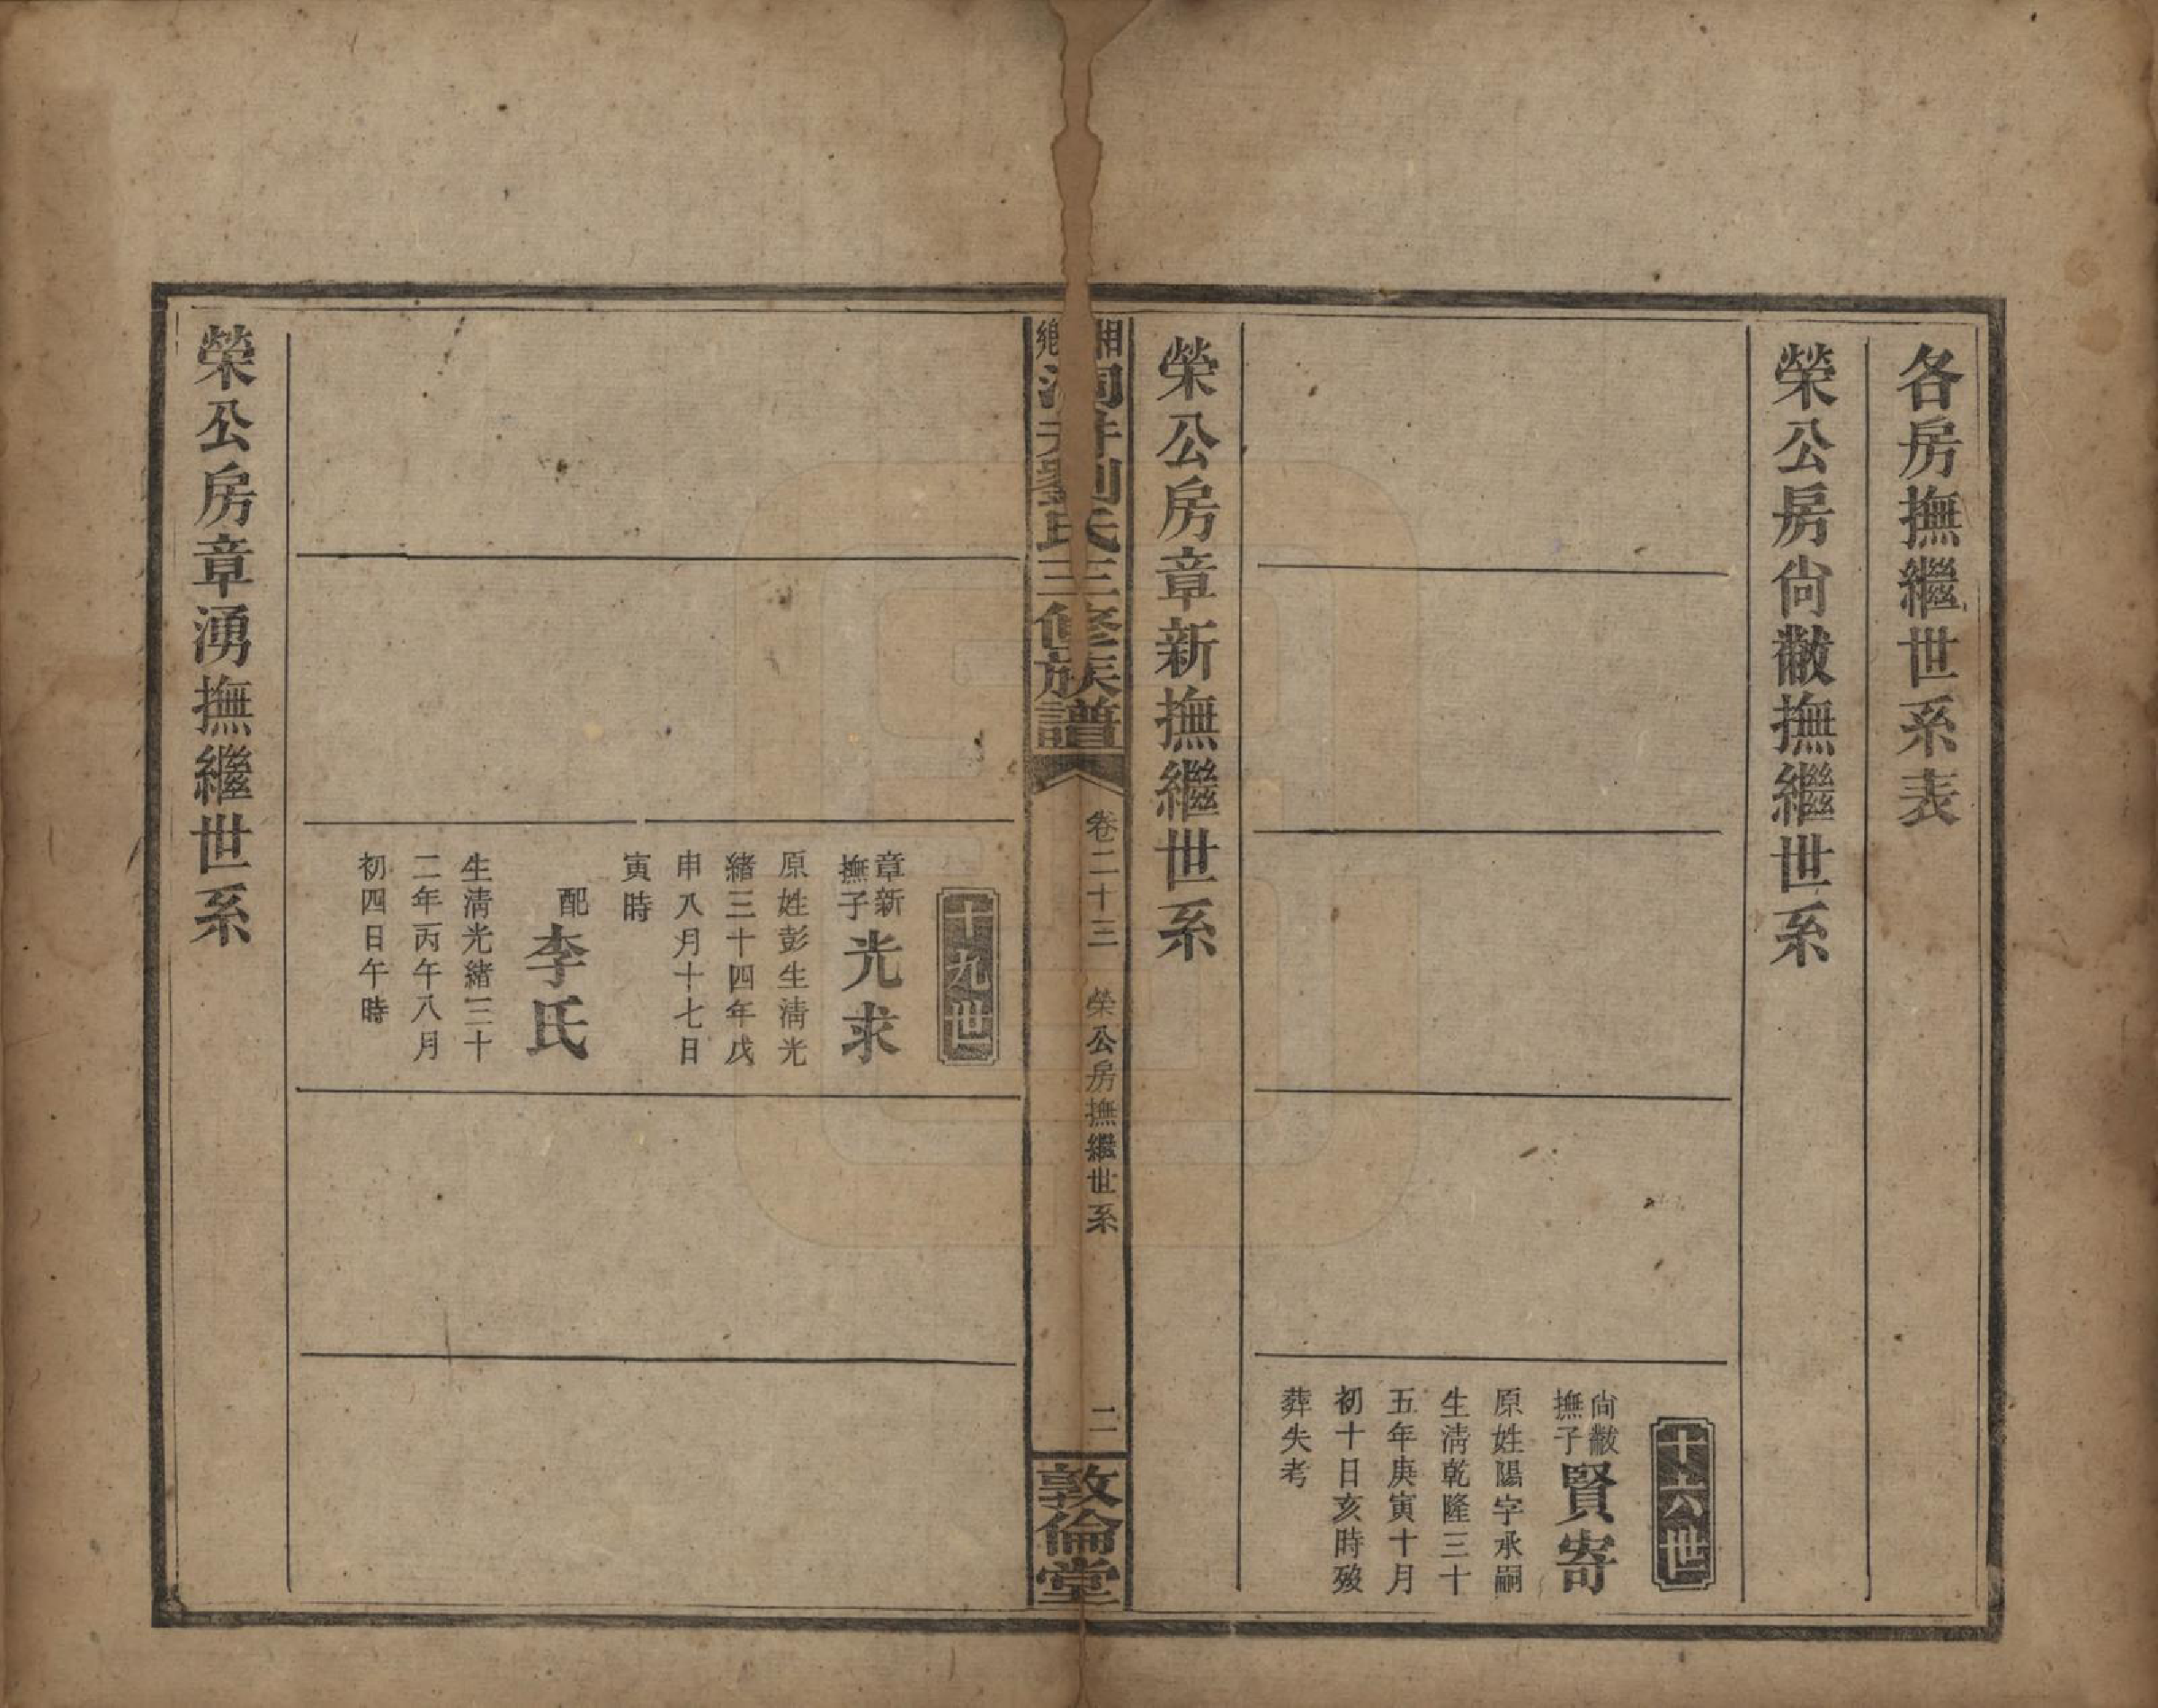 各房撫繼世系表
榮公房尙黻撫繼世系
十六世
尙黻
撫子
賢寄
原姓陽字承嗣
生淸乾隆三十
五年庚寅十月
初十日亥時歿
葬失考
榮公房章新撫繼世系
湘鄉洞井劉氏三修族譜
卷二十三
榮公房撫繼世系
二
敦倫堂
十九世
章新
撫子
光求
原姓彭生淸光
緖三十四年戊
申八月十七日
寅時
配
李氏
生淸光緖三十
二年丙午八月
初四日午時
榮公房章湧撫繼世系